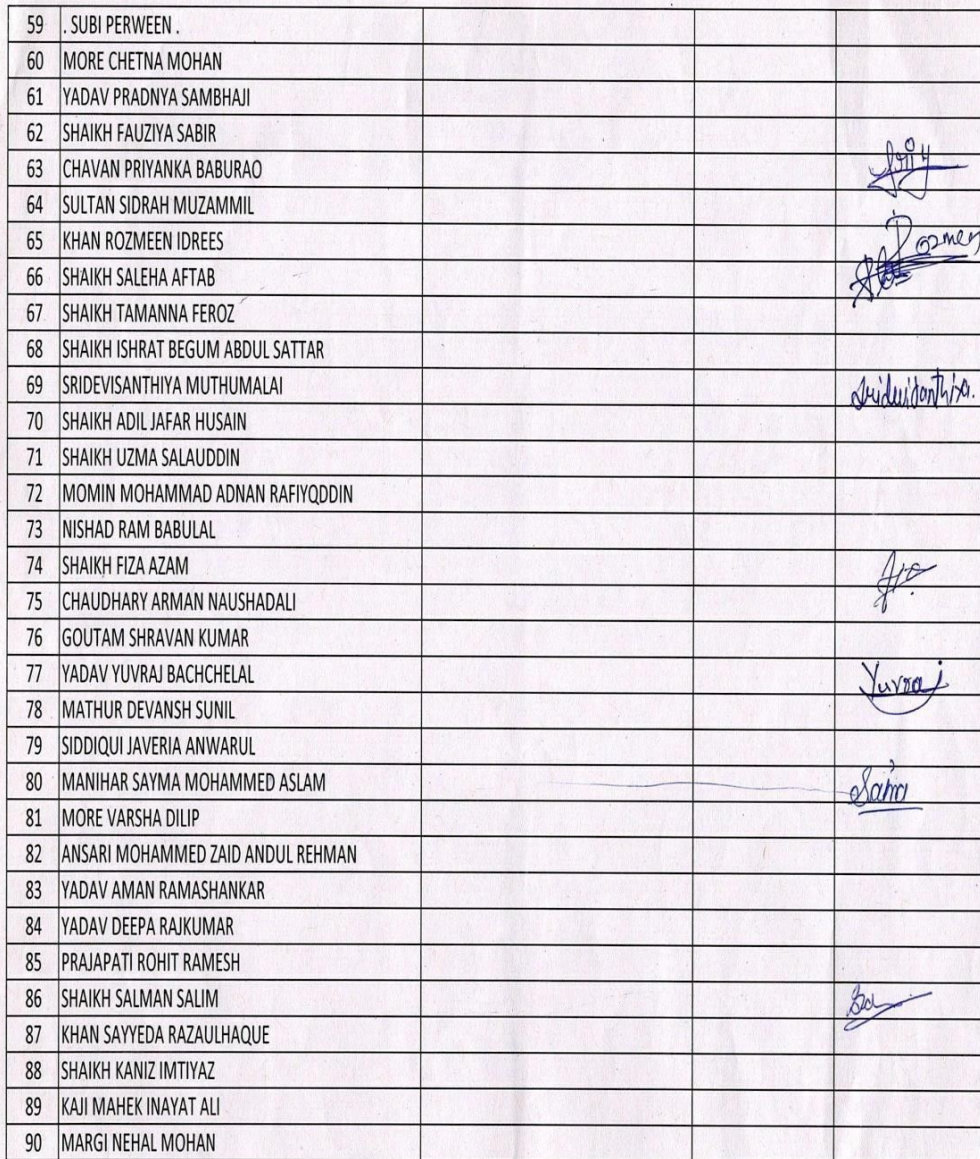 59 . SUBI PERWEEN .
60 MORE CHETNA MOHAN
61 YADAV PRADNYA SAMBHAJI
62 SHAIKH FAUZIYA SABIR
63 CHAVAN PRIYANKA BABURAO
64 SULTAN SIDRAH MUZAMMIL
65 KHAN ROZMEEN IDREES
66 SHAIKH SALEHA AFTAB
67 SHAIKH TAMANNA FEROZ
68 SHAIKH ISHRAT BEGUM ABDUL SATTAR
69 SRIDEVISANTHIYA MUTHUMALAI
70 SHAIKH ADIL JAFAR HUSAIN
71 SHAIKH UZMA SALAUDDIN
72 MOMIN MOHAMMAD ADNAN RAFIYQDDIN
73 NISHAD RAM BABULAL
74 SHAIKH FIZA AZAM
75 CHAUDHARY ARMAN NAUSHADALI
76 GOUTAM SHRAVAN KUMAR
77 YADAV YUVRAJ BACHCHELAL Yuvraj
78 MATHUR DEVANSH SUNIL
79 SIDDIQUI JAVERIA ANWARUL
80 MANIHAR SAYMA MOHAMMED ASLAM
81 MORE VARSHA DILIP
82 ANSARI MOHAMMED ZAID ANDUL REHMAN
83 YADAV AMAN RAMASHANKAR
84 YADAV DEEPA RAJKUMAR
85 PRAJAPATI ROHIT RAMESH
86 SHAIKH SALMAN SALIM
87 KHAN SAYYEDA RAZAULHAQUE
88 SHAIKH KANIZ IMTIYAZ
89 KAJI MAHEK INAYAT ALI
90 MARGI NEHAL MOHAN